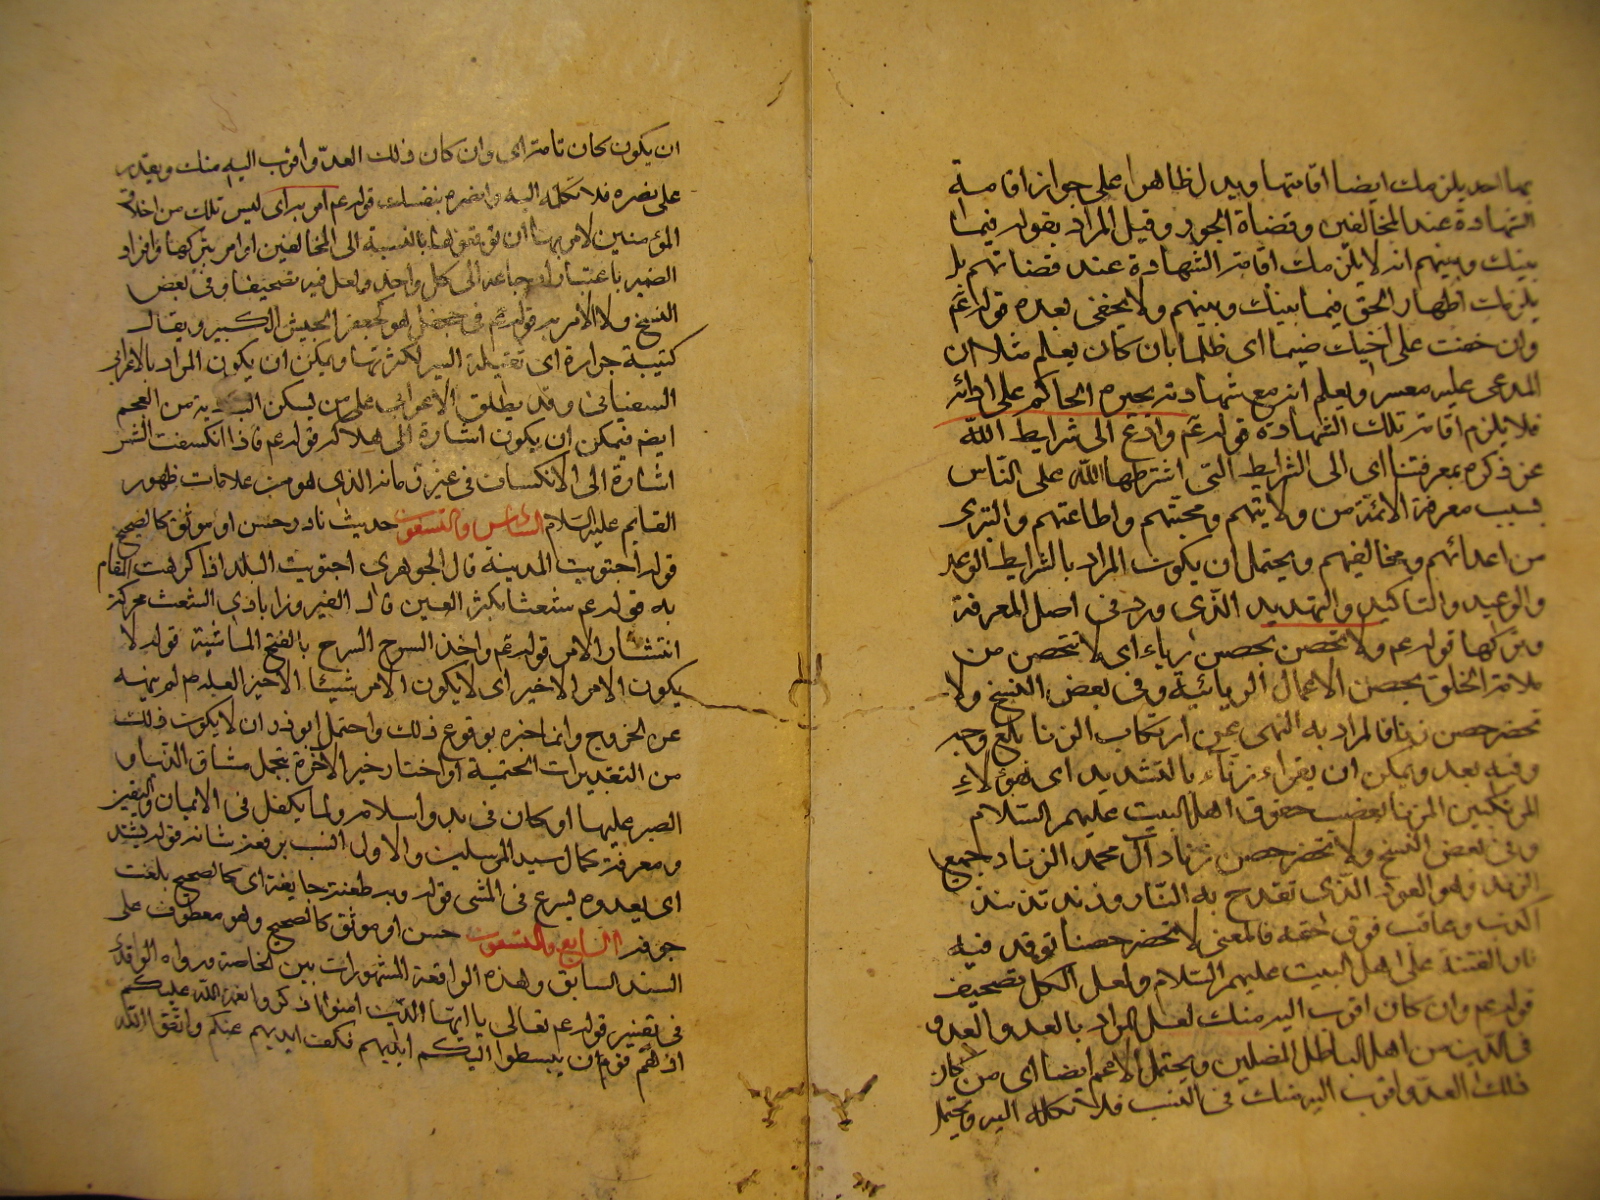 بها احد يلزمك ايضا اقامتها ويدل ظاهرا على جواز اقامة
الشهادة عند المخالفين وقضاة الجور وقيل المراد بقوله فيما
بينك وبينهم انه لا يلزمك اقامة الشهادة عند قضاتهم بل
يلزمك اظهار الحق فيما بينك وبينهم ولا يخفى بعده قوله عم
وان خفت على اخيك ضيما اى ظلما بان كان يعلم مثلا ان
المدعى عليه معسر ويعلم انه مع شهادته يجبره الحاكم على ادائه
فلا يلزم اقامة تلك الشهادة قوله عم وادع الى شرايط الله
عز ذكره بمعرفتنا اى الى الشرايط التى اشترطها الله على الناس
بسبب معرفة الائمة من ولايتهم ومحبتهم واطاعتهم والتبرى
من اعدائهم ومخالفيهم ويحتمل ان يكون المراد بالشرايط الوعد
والوعيد والتاكيد والتهديد الذى ورد فى اصل المعرفة
وتركها قوله عم ولا تحصن بحصن رياء اى لا تتحصن من
ملامة الخلق بحصن الاعمال الريائية وفى بعض النسخ ولا
تحضر حصن زنا فالمراد به النهى عن ارتكاب الزنا بابلغ وجه
وفيه بعد ويمكن ان يقراء زناء بالتشديد اى هؤلاء
المرتكبين الزنا بغصب حقوق اهل البيت عليهم السلام
وفى بعض النسخ ولا تحضر حصن زناد آل محمد الزناد جمع
الزند وهو العود الذى تقدح به النار وزند تزنيدا
كذب وعاقب فوق حقه فالمعنى لا تحضر حصنا توقد فيه
نار الفتنة على اهل البيت عليهم السلام ولعل الكل تصحيف
قوله عم وان كان اقرب اليه منك لعل المراد بالعدو العدو
فى الدين من اهل الباطل المضلين ويحتمل الاعم ايضا اى من كان
ذلك العدو اقرب اليه منك فى النسب فلا تكله اليه ويحتمل
ان يكون كان تامة اى وان كان ذلك العدو اقرب اليه منك ويقدر
على نصره فلا تكله اليه وانصره بنفسك قوله عم امر براى ليس تلك من اخلاق
المؤمنين لامر بها ان توقعوها بالنسبة الى المخالفين او امر بتركها وافراد
الضمير باعتبار ارجاعه الى كل واحد ولعل فيه تصحيفا وفى بعض
النسخ ولا الامر به قوله عم فى جحفل هو كجعفر الجيش الكبير ويقال
كتيبة جرارة اى ثقيلة السير لكثرتها ويمكن ان يكون المراد بالاعرابى
السفيانى وقد يطلق الاعرابى على من يسكن البادية من العجم
ايضه فيمكن ان يكون اشارة الى هلاكه قوله عم فاذا انكسفت الشمس
اشارة الى الانكساف فى غير زمانه الذى هو من علامات ظهور
القايم عليه السلام السادس والتسعون حديث نادر حسن او موثق كالصحيح
قوله اجتويت المدينة قال الجوهرى اجتويت البلد اذا كرهت المقام
به قوله عم شعثا بكثر العين قال الفيروزابادى الشعث محركة
انتشار الامر قوله عم واخذ السرح السرح بالفتح الماشية قوله لا
يكون الامر الاخير اى لا يكون الامر شيئا الاخير العله م لم ينهه
عن الخروج وانما اخبره بوقوع ذلك واحتمل ابوذر ان لا يكون ذلك
من التقديرات الحتمية او اختار خير الاخرة بتحمل مشاق الدنيا و
الصبر عليها او كان فى بدو اسلامه ولما يكمل فى الايمان واليقين
ومعرفة كمال سيد المرسلين والاولى انسب برفعة شانه قوله يشتد
اى يعدو ه يسرع فى المشى قوله وبه طعنة جايفة اى كالصحيح بلغت
جوفه السابع والتسعون حسن او موثق كالصحيح وهو معطوف على
السند السابق وهذه الواقعة المشهورات بين الخاصة ورواه الواقدى
فى تفسير قوله عم تعالى يا ايها الذين امنوا اذكروا نعمة الله عليكم
اذ هم قوم ان يبسطوا اليكم ايديهم فكف ايديهم عنكم واتقوا الله